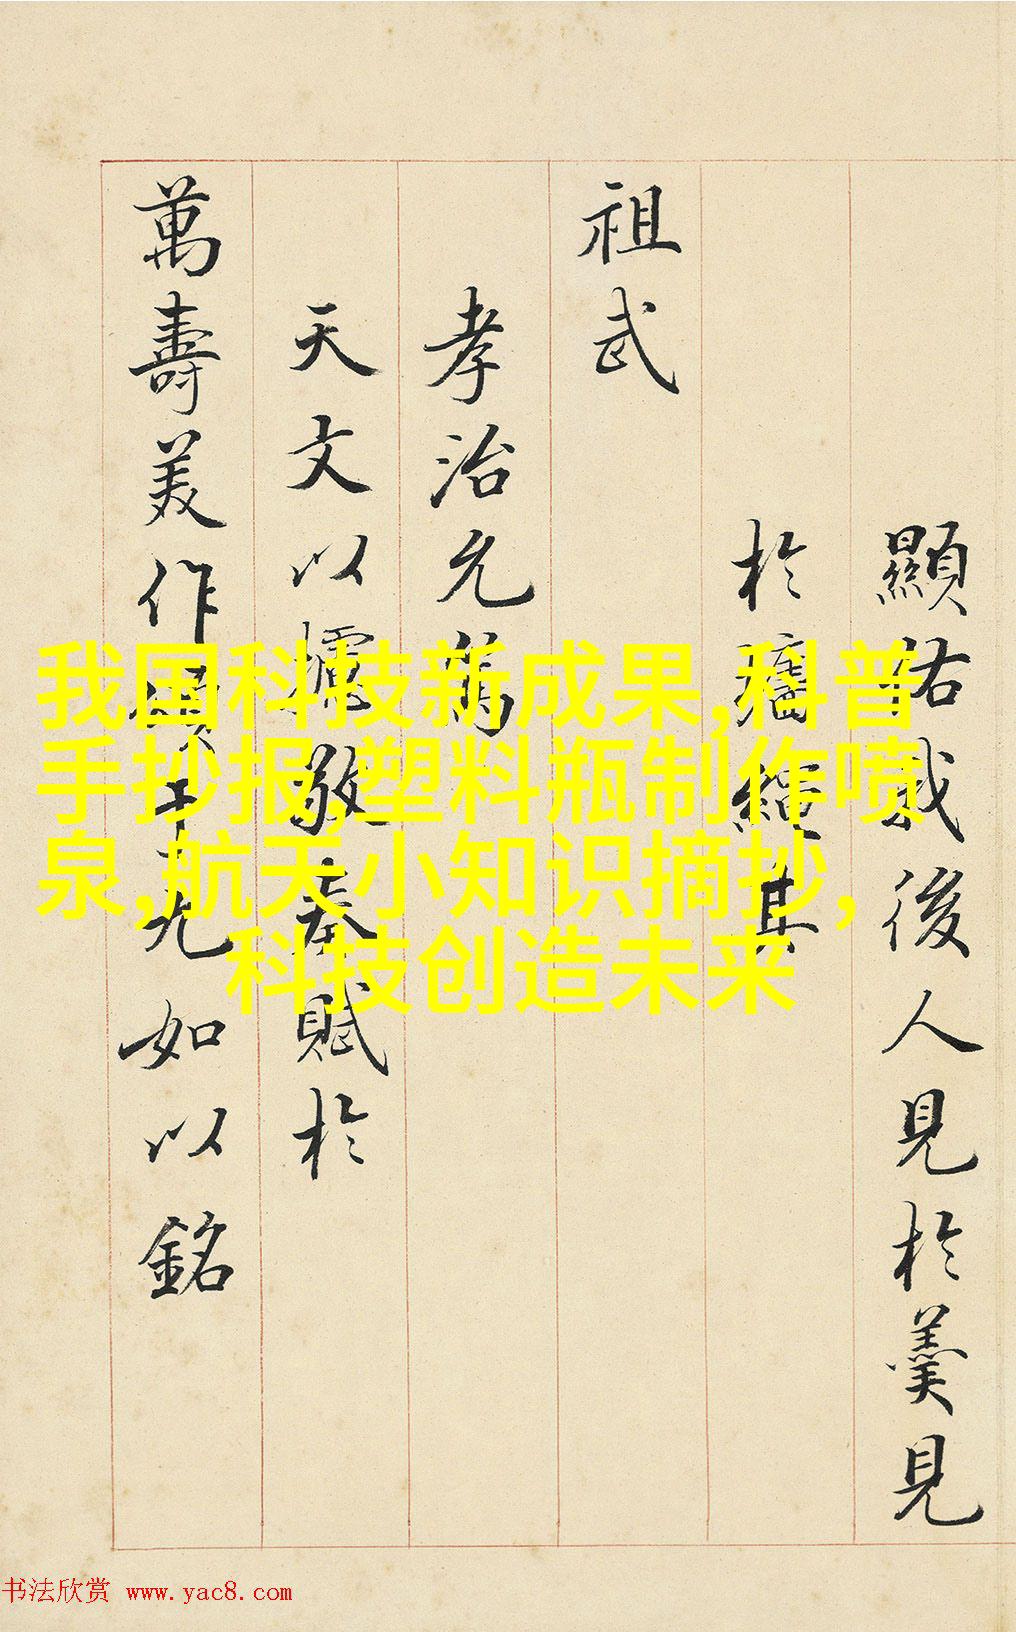 顯佑我後人見於羹見
於牆繩其
祖武
孝治允爲
天文以攄敬奉賦於
萬壽美作 九如以銘
我国科技新成果,科普
手抄报,塑料瓶制作喷
泉,航天小知识摘抄,
科技创造未来
书法欣赏 www.yac8.com